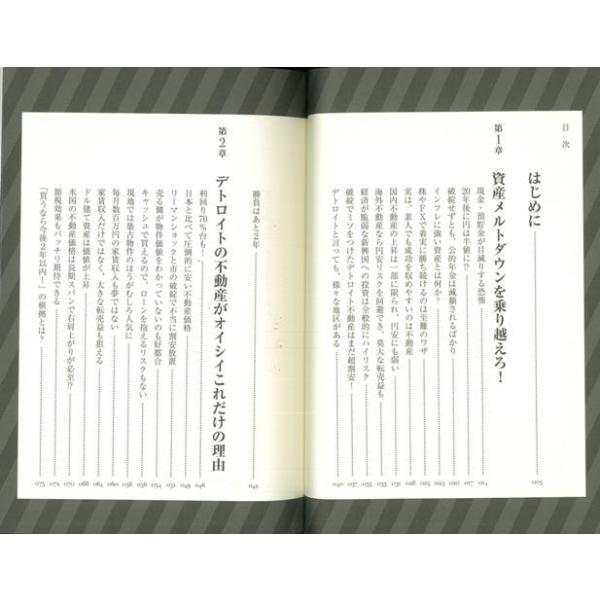 目次
はじめに 003
第1章 資産メルトダウンを乗り越えろ!
現金・預貯金が目減りする恐怖 014
20年後に円は半値に!? 017
破綻せずとも、公的年金は減額されるばかり 020
インフレに強い資産とは何か?
株やFXで着実に勝ち続けるのは至難のワザ 025
実は、素人でも成功を収めやすいのは不動産
国内不動産の上昇は一部に限られ、円安にも弱い 031
海外不動産なら円安リスクを回避でき、莫大な転売益も
経済が脆弱な新興国への投資は全般的にハイリスク
破綻でミソをつけたデトロイト不動産はまだ超割安! 037
デトロイトと言っても、様々な地区がある 040
勝負はあと2年 042
第2章 デトロイトの不動産がオイシイこれだけの理由
利回り70%台も! 048
日本と比べて圧倒的に安い不動産価格 049
リーマンショックと市の破綻で不当に割安放置 051
売る側が物件価値をわかっていないのも好都合 054
キャッシュで買えるので、ローンを抱えるリスクもない 056
現地では築古物件のほうがむしろ人気に 058
毎月数百万円の家賃収入も夢ではない 060
家賃収入だけではなく、大きな転売益も狙える 064
ドル建て資産は価値が上昇 068
米国の不動産価格は長期スパンで右肩上がりが必至!? 070
節税効果もバッチリ期待できる
「買うなら今後2年以内!」の根拠とは? 075